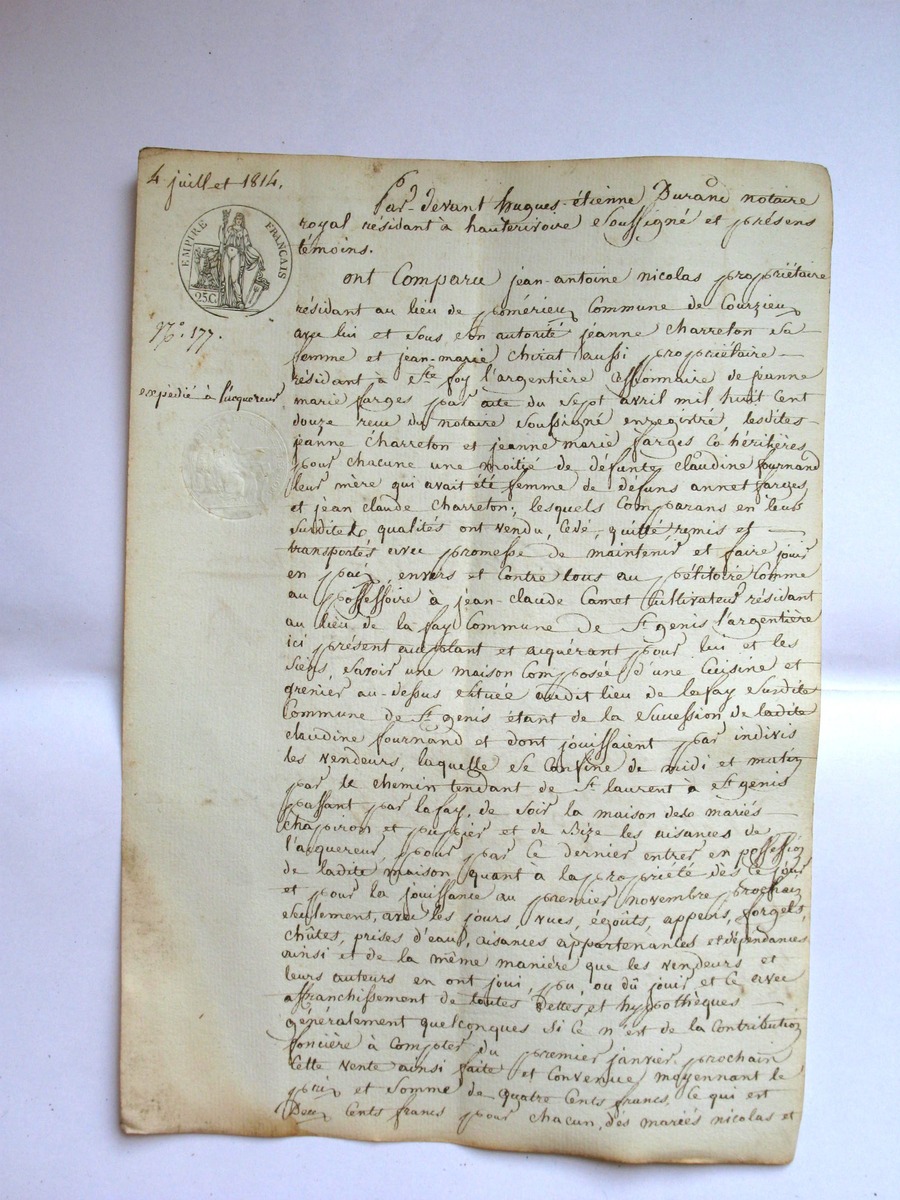 4 juillet 1814.
EMPIRE FRANÇAIS
25 C.
N.º 177.
expedié à l'acquereur
Par-devant hugues-étienne Durand notaire
royal résidant à hauterivoire soussigné et présens
témoins.
ont Comparu jean-antoine nicolas propriétaire
résidant au lieu de pomérieu Commune de Courzieu
avec lui et sous son autorité jeanne Charreton sa
femme et jean-marie Chirat aussi propriétaire
résidant à Ste foy l'argentière Cessionnaire de jeanne
marie farges par acte du sept avril mil huit cent
douze recu du notaire soussigné enregistré, lesdites
jeanne Charreton et jeanne marie farges Co-héritières
pour chacune une moitié de défunte claudine fournand
leur mère qui avait été femme de défuns annet farges
et jean claude Charreton; lesquels Comparans en leurs
susdites qualités ont vendu, Cédé, quitté, remis et
transportés avec promesse de maintenir et faire jouir
en paix, envers et contre tous au pétitoire Comme
au possessoire à jean-claude Camet Cultivateur résidant
au lieu de la fay Commune de St genis l'argentière
ici présent acceptant et acquérant pour lui et les
siens, savoir une maison Composée d'une Cuisine et
grenier au-dessus située audit lieu de lafay susdite
Commune de St genis étant de la succession de ladite
claudine fournand et dont jouissaient par indivis
les vendeurs, laquelle se Confine de midi et matin
par le chemin tendant de St laurent à St genis
passant par lafay, de soir la maison des mariés
Chapiron et pupier et de Bize les aisances de
l'acquereur, pour par ce dernier entrer en possession
de ladite maison quant a la propriété dès ce jour
et pour la jouissance au premier novembre prochain
seulement, avec les jours, vues, égoûts, appens, forgets,
chûtes, prises d'eau, aisances appartenances et dépendances
ainsi et de la même manière que les vendeurs et
leurs auteurs en ont joui, pu, ou dû jouir et ce avec
affranchissement de toutes dettes et hypothèques
généralement quelconques si ce n'est de la Contribution
foncière à Compter du premier janvier prochain
Cette vente ainsi faite et Convenue moyennant le
prix et somme de quatre Cents francs, Ce qui est
Deux Cents francs pour chacun, des mariés nicolas et